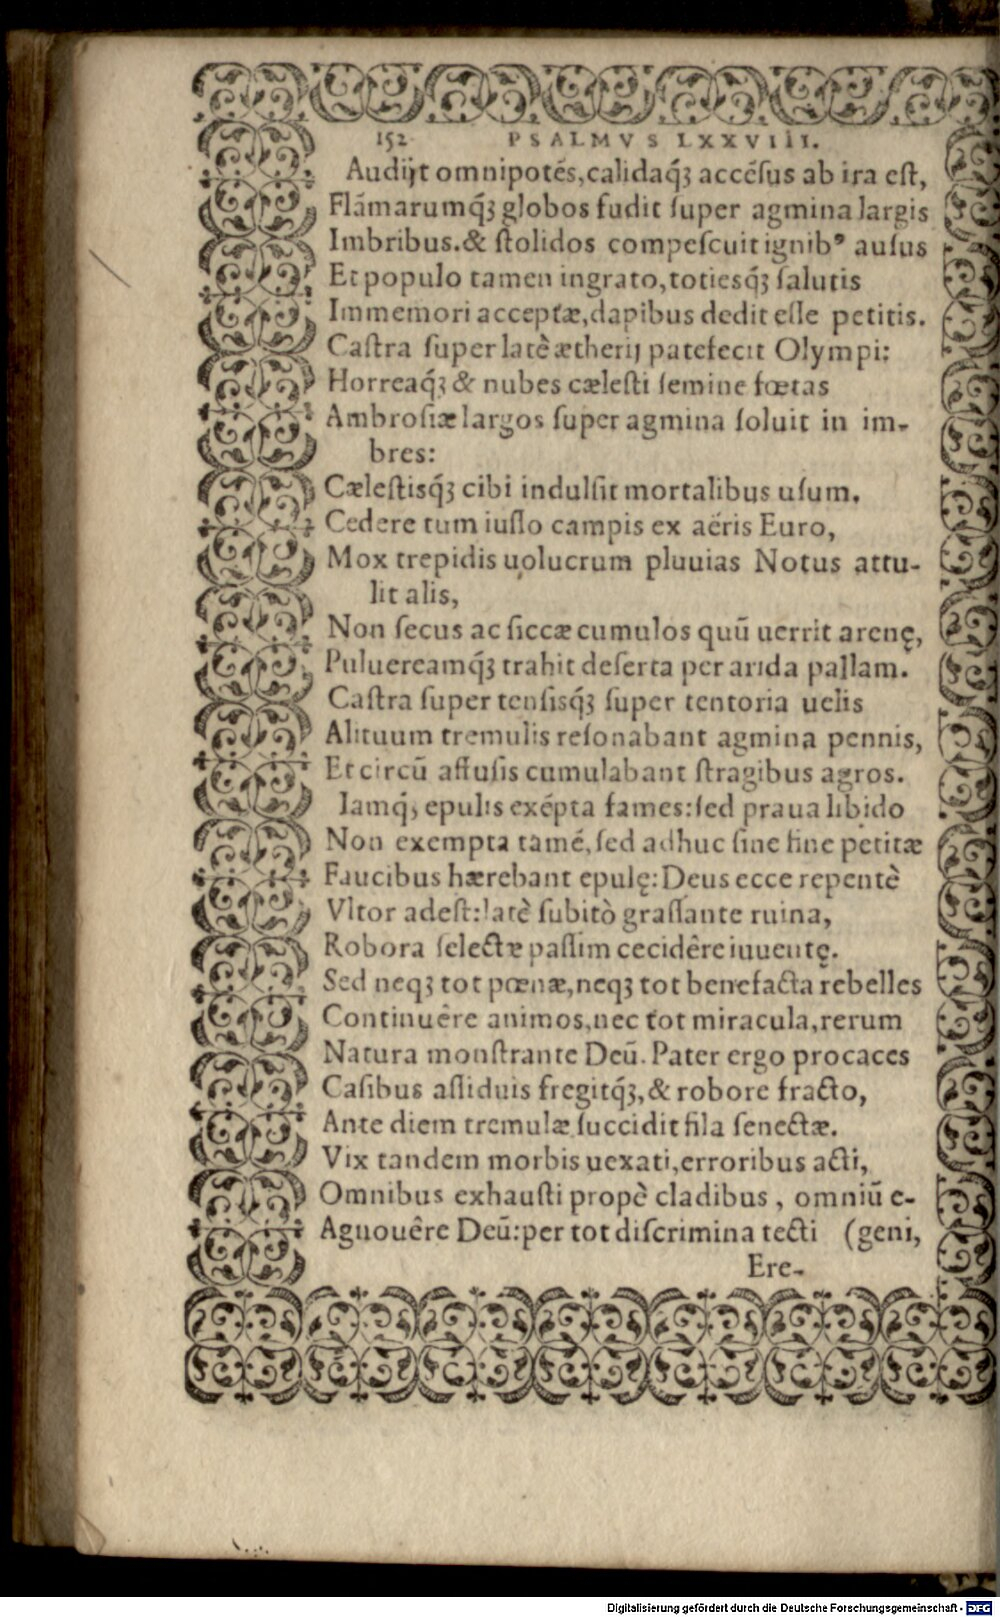 152 PSALMVS LXXVIII.
Audijt omnipotẽs, calidaq́ꝫ accẽsus ab ira est,
Flãmarumq́ꝫ globos fudit super agmina largis
Imbribus. & stolidos compescuit ignibꝰ ausus
Et populo tamen ingrato, totiesq́ꝫ salutis
Immemori acceptæ, dapibus dedit esse petitis.
Castra super latè ætherij patefecit Olympi:
Horreaq́ꝫ & nubes cælesti semine fœtas
Ambrosiæ largos super agmina soluit in im-
bres:
Cælestisq́ꝫ cibi indulsit mortalibus usum.
Cedere tum iusso campis ex aëris Euro,
Mox trepidis uolucrum pluuias Notus attu-
lit alis,
Non secus ac siccæ cumulos quũ uerrit arenę,
Puluereamq́ꝫ trahit deserta per arida pallam.
Castra super tensisq́ꝫ super tentoria uelis
Alituum tremulis resonabant agmina pennis,
Et circũ affusis cumulabant stragibus agros.
Iamq́ꝫ epulis exẽpta fames: sed praua libido
Non exempta tamẽ, sed adhuc sine fine petitæ
Faucibus hærebant epulę: Deus ecce repentè
Vltor adest: latè subitò grassante ruina,
Robora selectæ passim cecidêre iuuentę.
Sed neqꝫ tot pœnæ, neqꝫ tot benefacta rebelles
Continuêre animos, nec tot miracula, rerum
Natura monstrante Deũ. Pater ergo procaces
Casibus assiduis fregitq́ꝫ, & robore fracto,
Ante diem tremulæ succidit fila senectæ.
Vix tandem morbis uexati, erroribus acti,
Omnibus exhausti propè cladibus, omniũ e-
Agnouêre Deũ: per tot discrimina tecti (geni,
Ere-
Digitalisierung gefördert durch die Deutsche Forschungsgemeinschaft - DFG